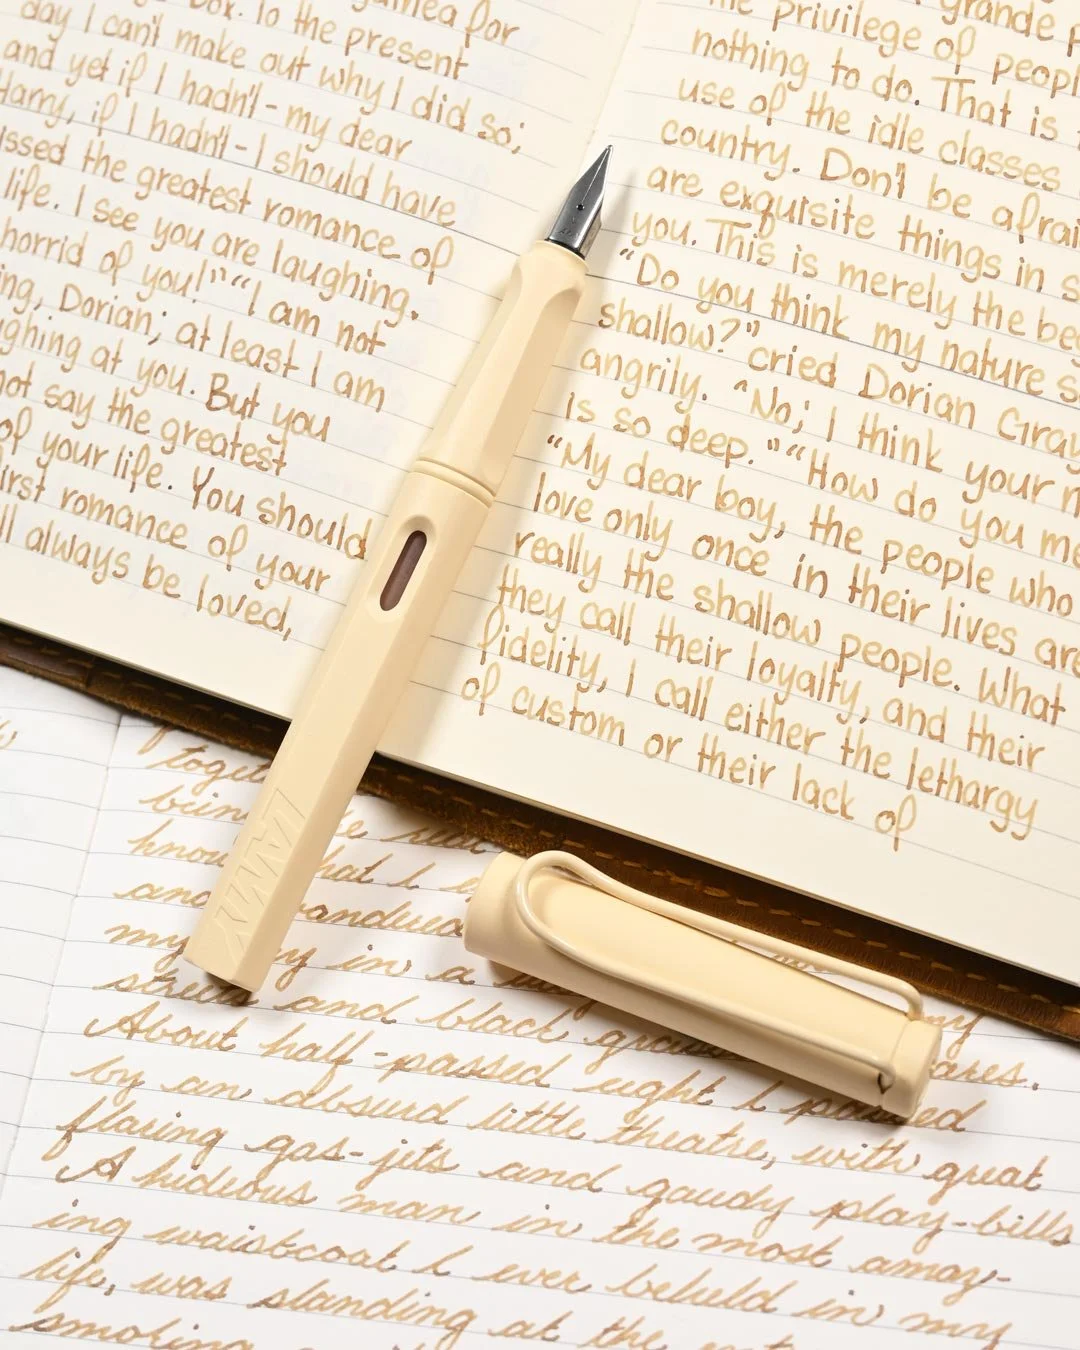 day I can't make out why I did so;
and yet if I hadn't - my dear
Harry, if I hadn't - I should have
the greatest romance of
life. I see you are laughing.
horrid of you!" "I am not
Dorian; at least I am
at you. But you
not say the greatest
of your life. You should
romance of your
always be loved,
privilege of
nothing to do. That is
use of the idle classes
country. Don't be
are exquisite things in
you. This is merely the
"Do you think my nature
shallow?" cried Dorian Gray
angrily. "No; I think your
is so deep." "How do you
"My dear boy, the people who
love only once in their lives are
really the shallow people. What
they call their loyalty, and their
fidelity, I call either the lethargy
of custom or their lack of
LAMY
and
my in a
and black
About half-passed eight I passed
by an absurd little theatre, with great
flaring gas-jets and gaudy play-bills
A hideous man in the most amaz-
ing waistcoat I ever beheld in my
life, was standing at the
smoking